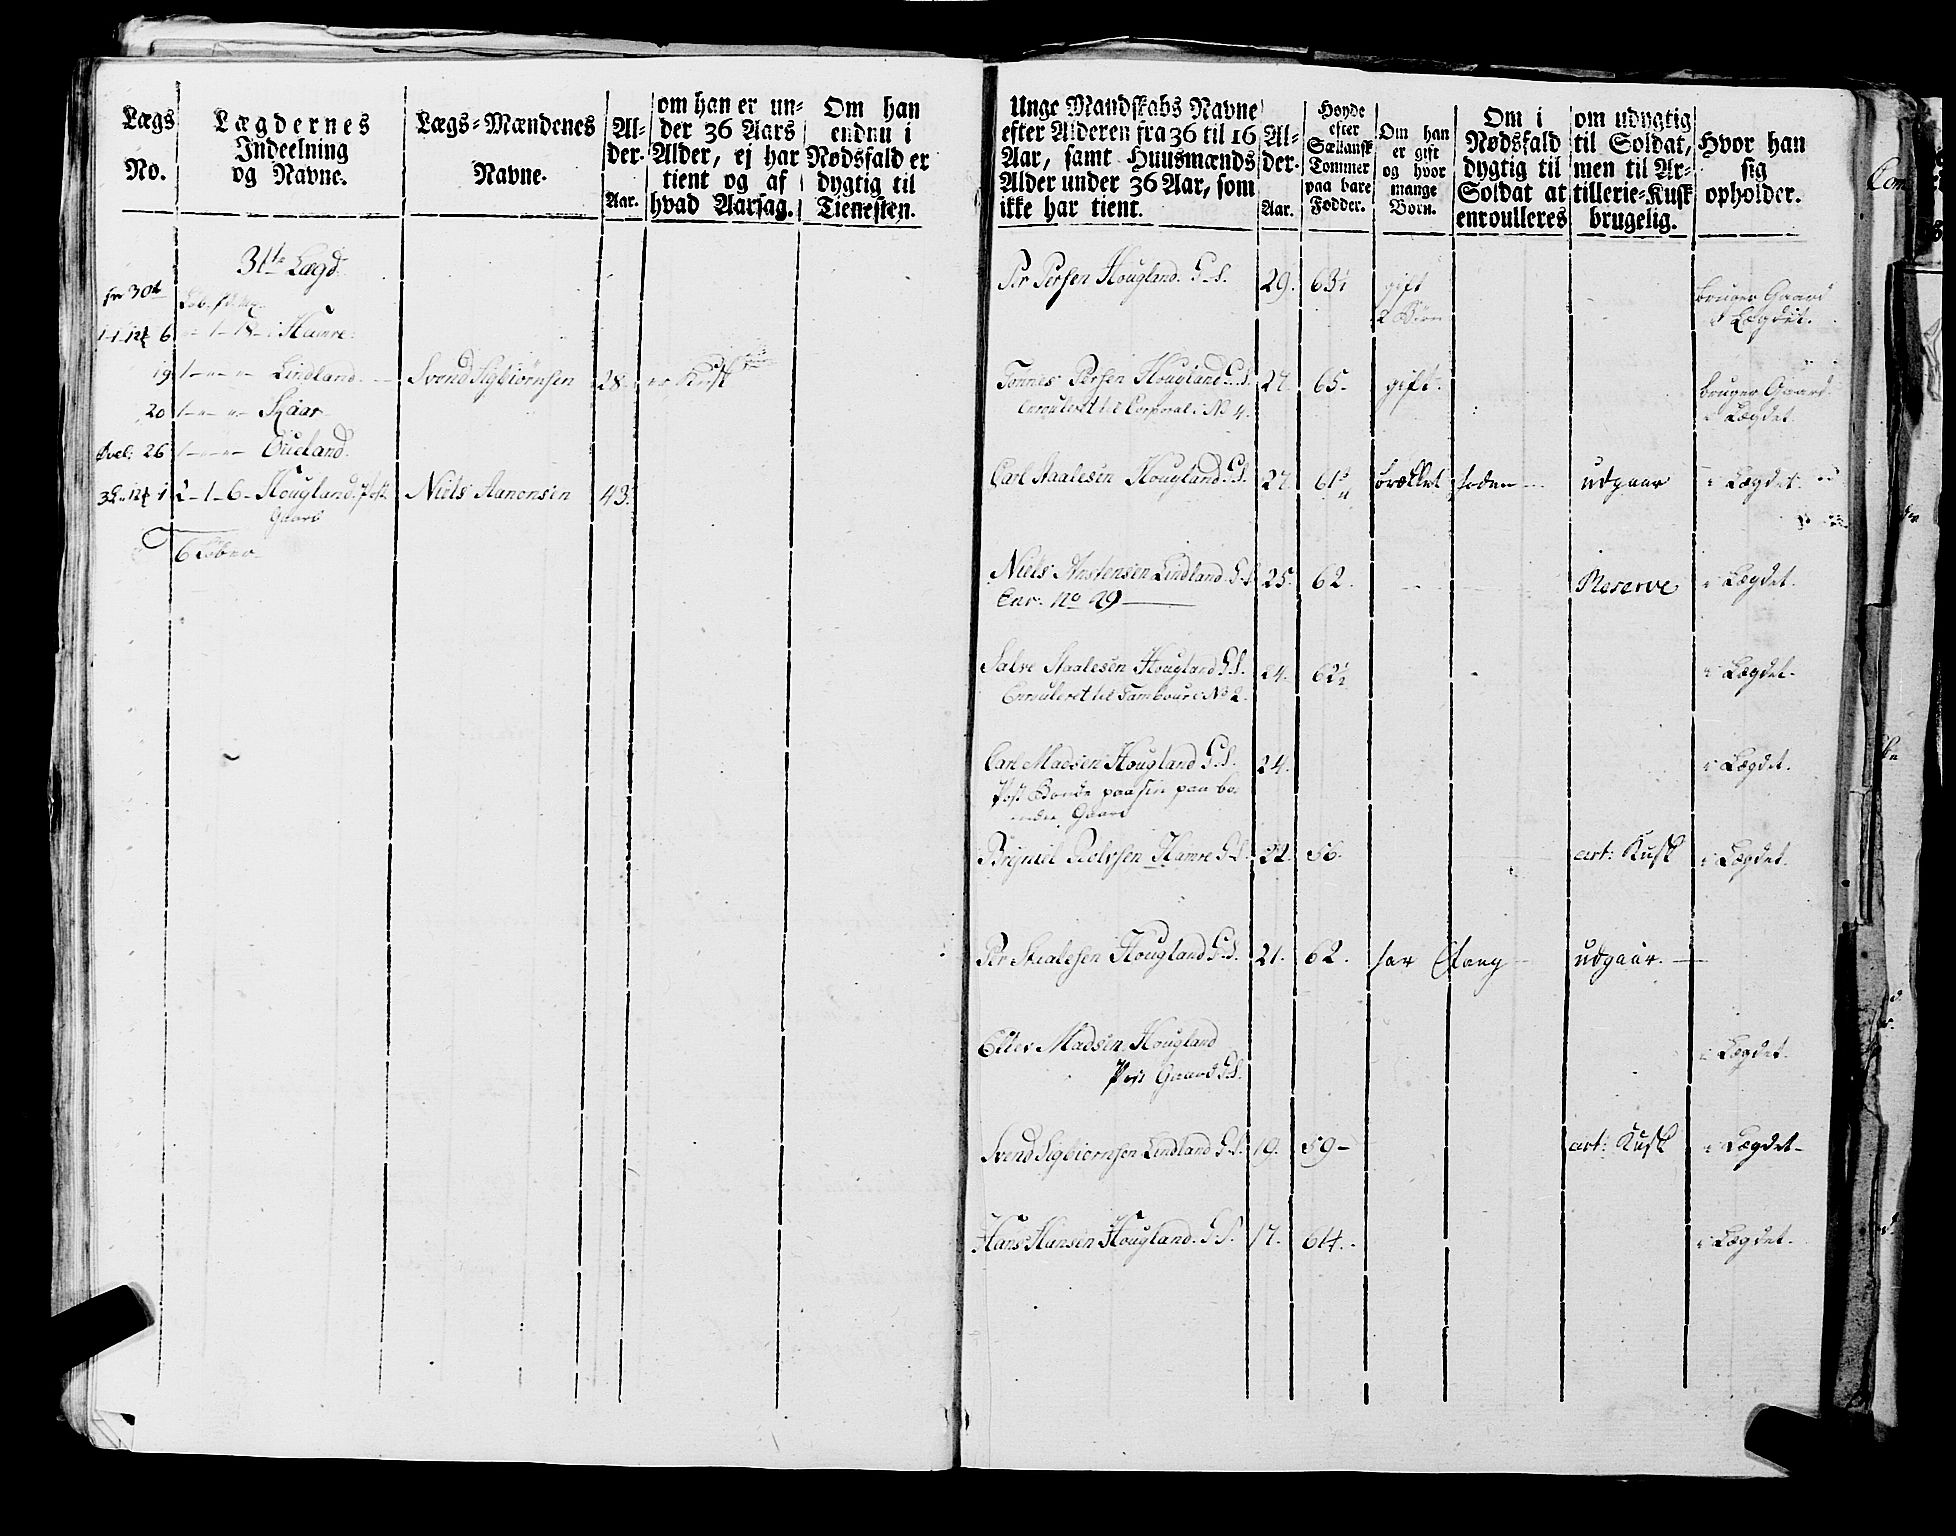 Lægs
No.
Lægdernes
Indeelning
og Navne.
Lægs-Mændenes
Navne.
Al-
der.
Aar.
om han er un-
der 36 Aars
Alder, ej har
tient og af
hvad Aarsag.
Om han
endnu i
Nødsfald er
dygtig til
Tienesten.
31te Lægd
fra 30te
6 - 1 - 18 - Hamre.
19 1 - - - Lindland Svend Sigbiørnsen 28. er Kusk
20 1 - - - Skaar
26 1 - - - Oueland
1 2 - 1 - 6 - Hougland Post Niels Aanonsen 43.
Gaard
6 Løber
Unge Mandskabs Navne
efter Alderen fra 36 til 16
Aar, samt Huusmænds
Alder under 36 Aar, som
ikke har tient.
Al-
der.
Aar.
Høyde
efter
Sællansk
Tommer
paa bare
Fødder.
Om han
er gift
og hvor
mange
Børn.
Om i
Nødsfald
dygtig til
Soldat at
enroulleres
om udygtig
til Soldat,
men til Ar-
tillerie-Kusk
brugelig.
Hvor han
sig
opholder.
Per Persen Hougland. G.S. 29. 63½ gift
2 Børn
bruger Gaard
i Lægdet.
Tønnes Persen Hougland G.S. 27. 65. gift.
Enrouleret til Corporal No 4.
bruger Gaard
i Lægdet.
Carl Staalesen Hougland G.S. 27. 61 brækket foden udgaar i Lægdet.
Niels Anstensen Lindland G.S. 25. 62. Reserve i Lægdet.
Enr. No 29
Salve Staalesen Hougland G.S. 24. 62½ i Lægdet.
Enrouleret til Tambour No 2.
Carl Madsen Hougland G.S. 24. i Lægdet.
Post Bonde paa sin paa bo-
ende Gaard
Bryniel Rolvsen Hamre G.S. 22. 56. art: Kusk i Lægdet.
Per Staalesen Hougland G.S. 21. 62. har udgaar.
Eller Madsen Hougland i Lægdet.
Post Gaard G.S.
Svend Sigbiørnsen Lindland G.S. 19. 59 - art: Kusk i Lægdet -
Hans Hansen Hougland. G.S. 17. 64. i Lægdet.